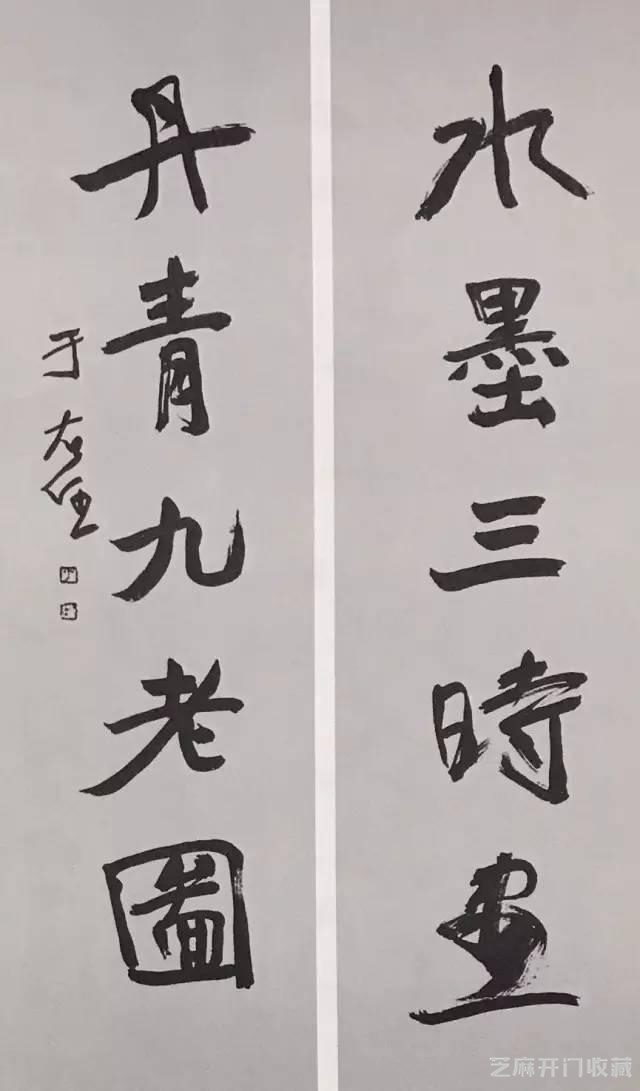 水墨三時画
丹青九老圖
于右任
芝麻开门收藏